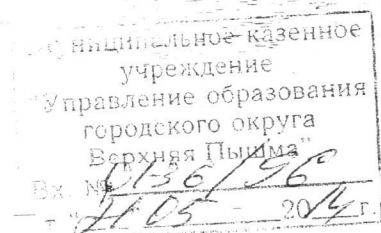 Муниципальное казенное
учреждение
"Управление образования
городского округа
Верхняя Пышма"
Вх. №
05 2014 г.